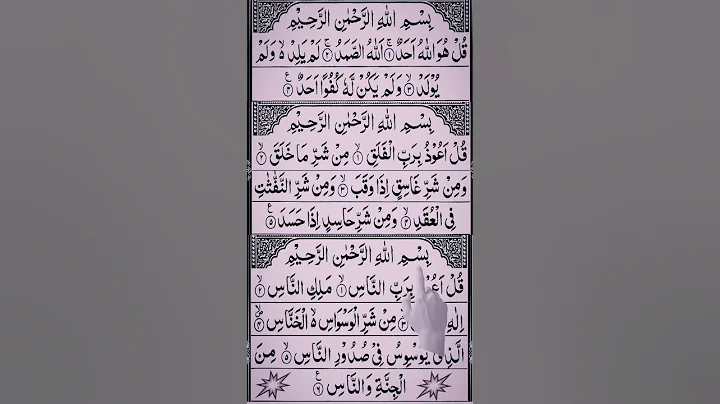 بِسْمِ اللهِ الرَّحْمٰنِ الرَّحِيْمِ
قُلْ هُوَ اللهُ اَحَدٌ ۚ﴿۱﴾ اَللهُ الصَّمَدُ ۚ﴿۲﴾ لَمْ يَلِدْ ۙ وَلَمْ
يُوْلَدْ ۙ﴿۳﴾ وَلَمْ يَكُنْ لَّهٗ كُفُوًا اَحَدٌ ﴿۴﴾
بِسْمِ اللهِ الرَّحْمٰنِ الرَّحِيْمِ
قُلْ اَعُوْذُ بِرَبِّ الْفَلَقِ ۙ﴿۱﴾ مِنْ شَرِّ مَا خَلَقَ ۙ﴿۲﴾
وَمِنْ شَرِّ غَاسِقٍ اِذَا وَقَبَ ۙ﴿۳﴾ وَمِنْ شَرِّ النَّفّٰثٰتِ
فِي الْعُقَدِ ۙ﴿۴﴾ وَمِنْ شَرِّ حَاسِدٍ اِذَا حَسَدَ ﴿۵﴾
بِسْمِ اللهِ الرَّحْمٰنِ الرَّحِيْمِ
قُلْ اَعُوْذُ بِرَبِّ النَّاسِ ۙ﴿۱﴾ مَلِكِ النَّاسِ ۙ﴿۲﴾
اِلٰهِ ۙ﴿۳﴾ مِنْ شَرِّ الْوَسْوَاسِ ۙ الْخَنَّاسِ ۙ﴿۴﴾
الَّذِيْ يُوَسْوِسُ فِيْ صُدُوْرِ النَّاسِ ۙ﴿۵﴾ مِنَ
الْجِنَّةِ وَالنَّاسِ ﴿۶﴾